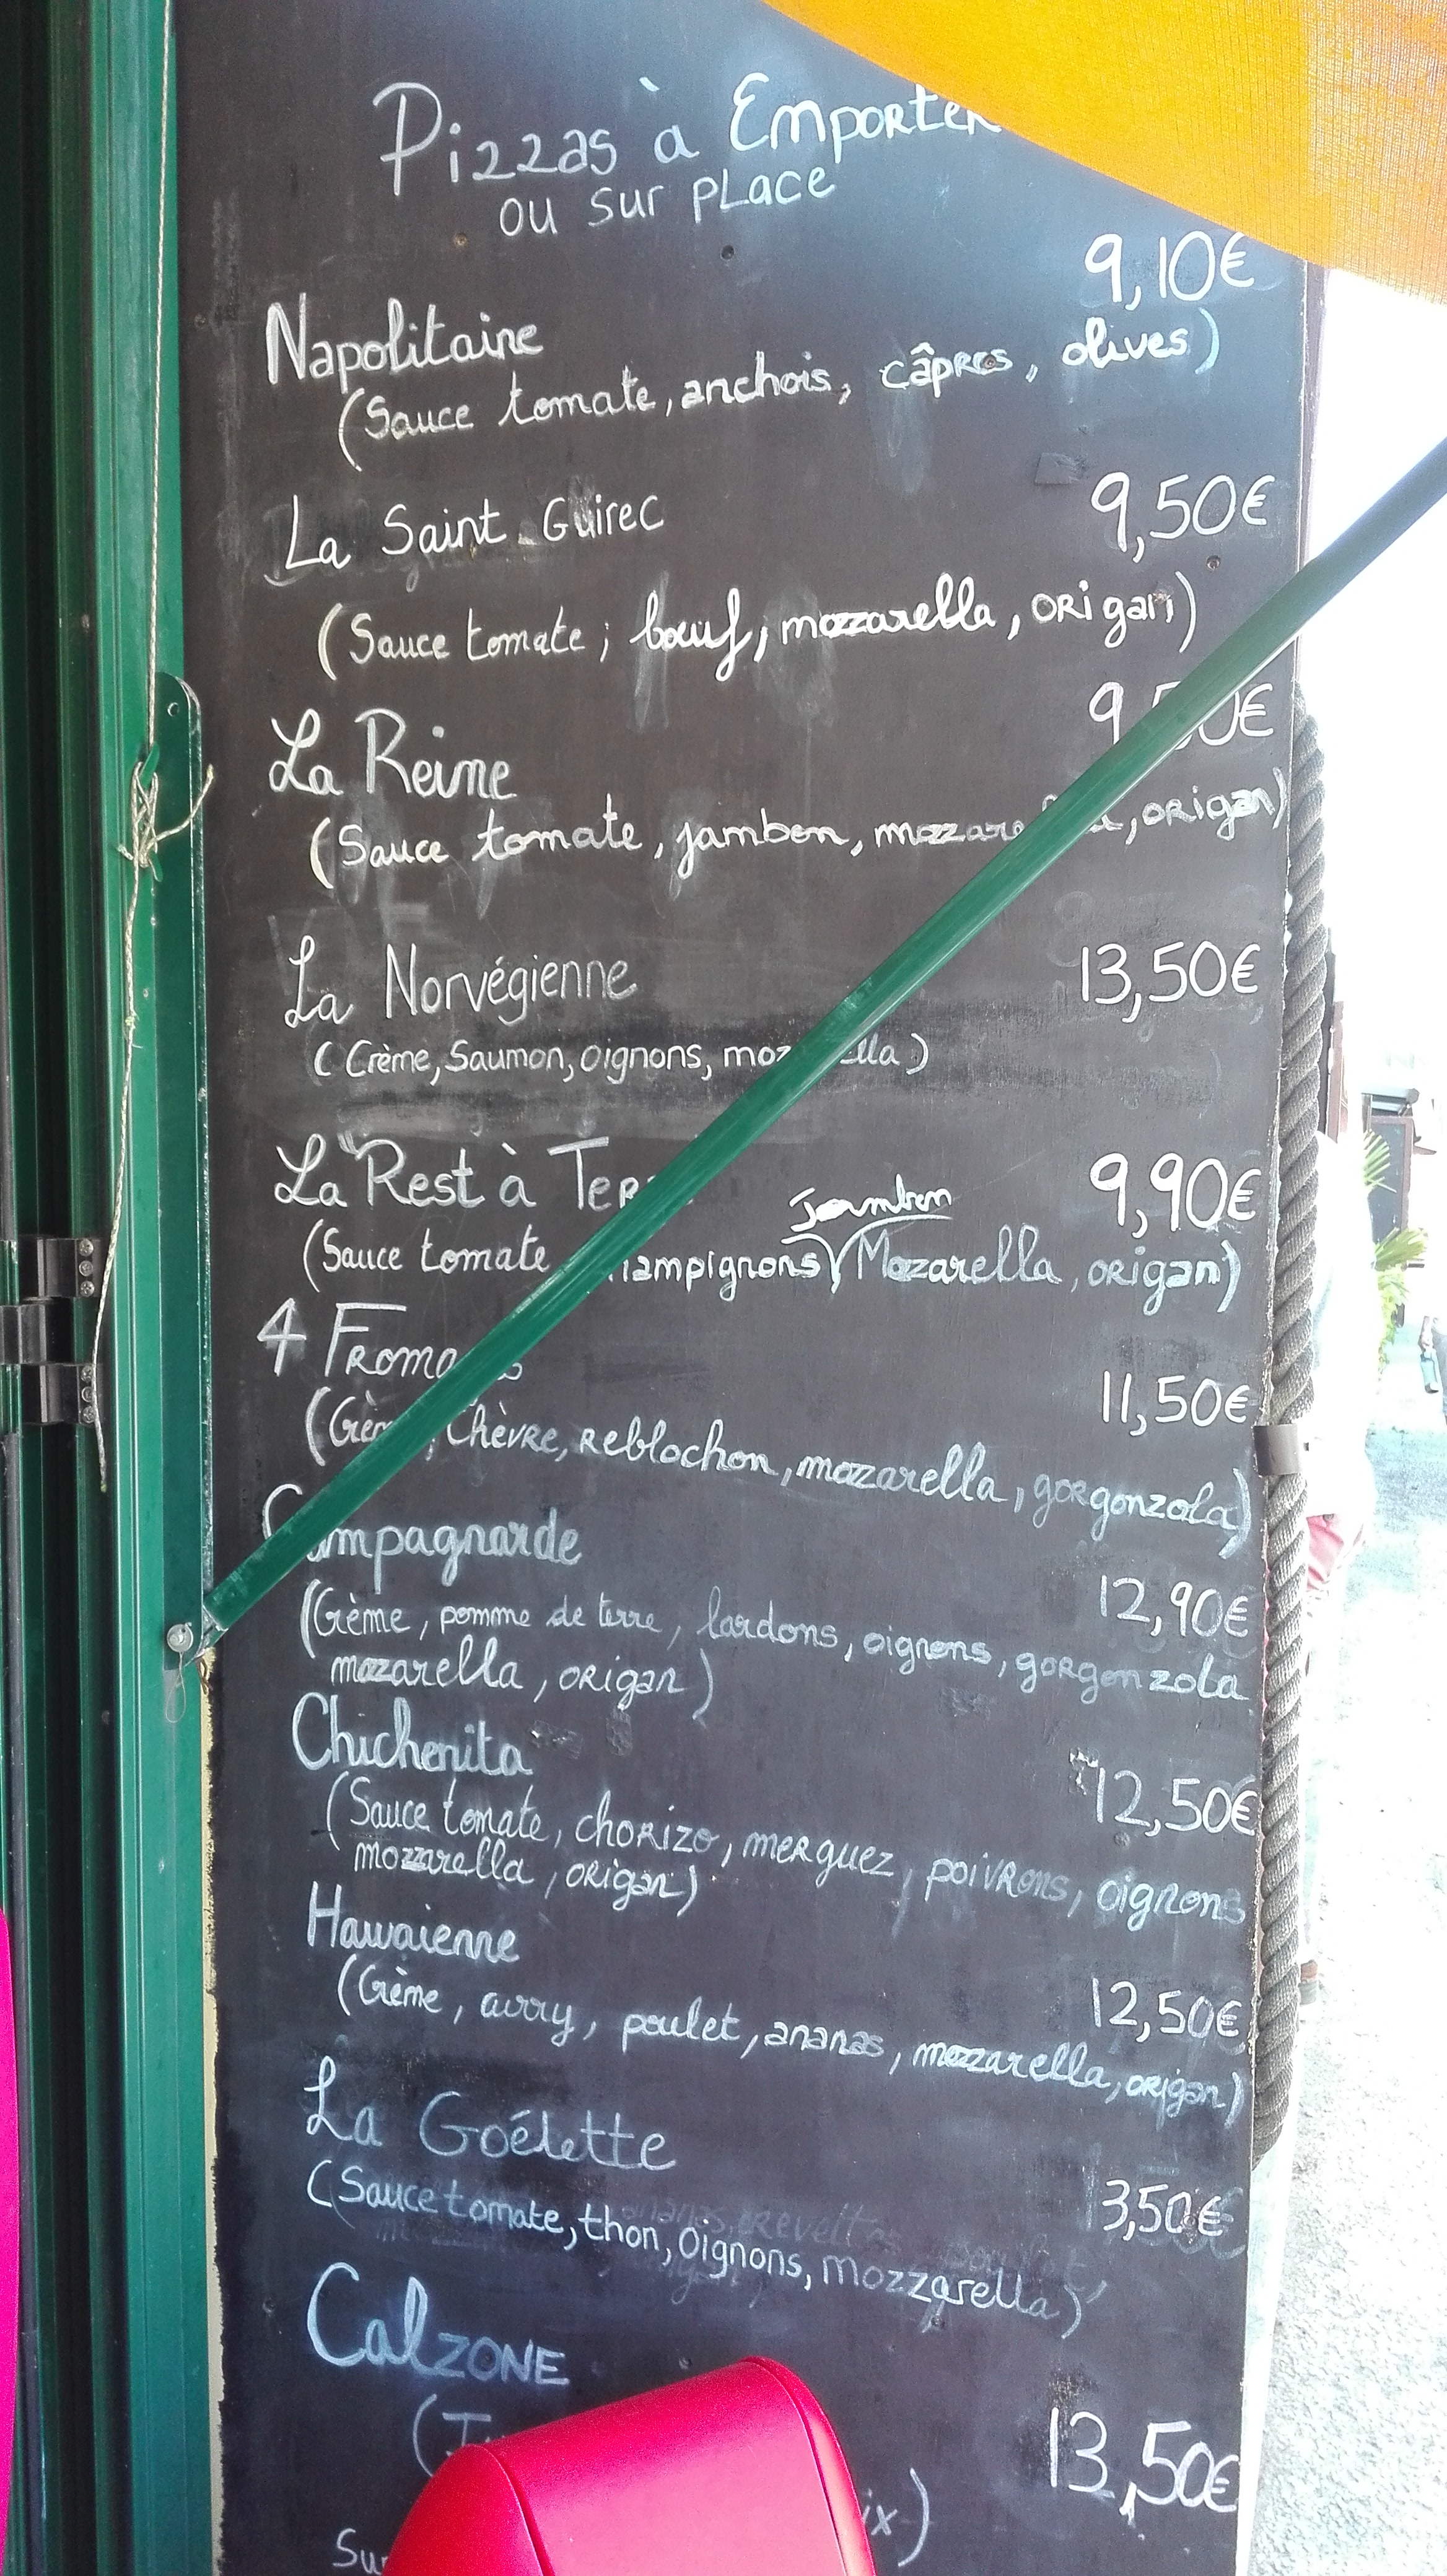 Pizzas à Emporter
ou sur place
9,10€
Napolitaine
(Sauce tomate, anchois, câpres, olives)
La Saint Guirec 9,50€
(Sauce tomate; bœuf, mozzarella, origan)
La Reine
(Sauce tomate, jambon, origan)
La Norvégienne 13,50€
(Crème, Saumon, oignons,
La Rest à 9,90€
Jambon
(Sauce tomate Mozarella, origan)
4
11,50€
Chèvre, reblochon, mozarella, gorgonzola)
12,90€
(Crème, pomme de terre, lardons, oignons, gorgonzola
mozarella, origan)
Chichenita
12,50€
(Sauce tomate, chorizo, merguez, poivrons, oignons
mozzarella, origan)
Hawaienne
12,50€
(Crème, curry, poulet, ananas, mozzarella, origan)
La Goélette
3,50€
(Sauce tomate, thon, oignons, mozzarella)
Calzone
13,50€